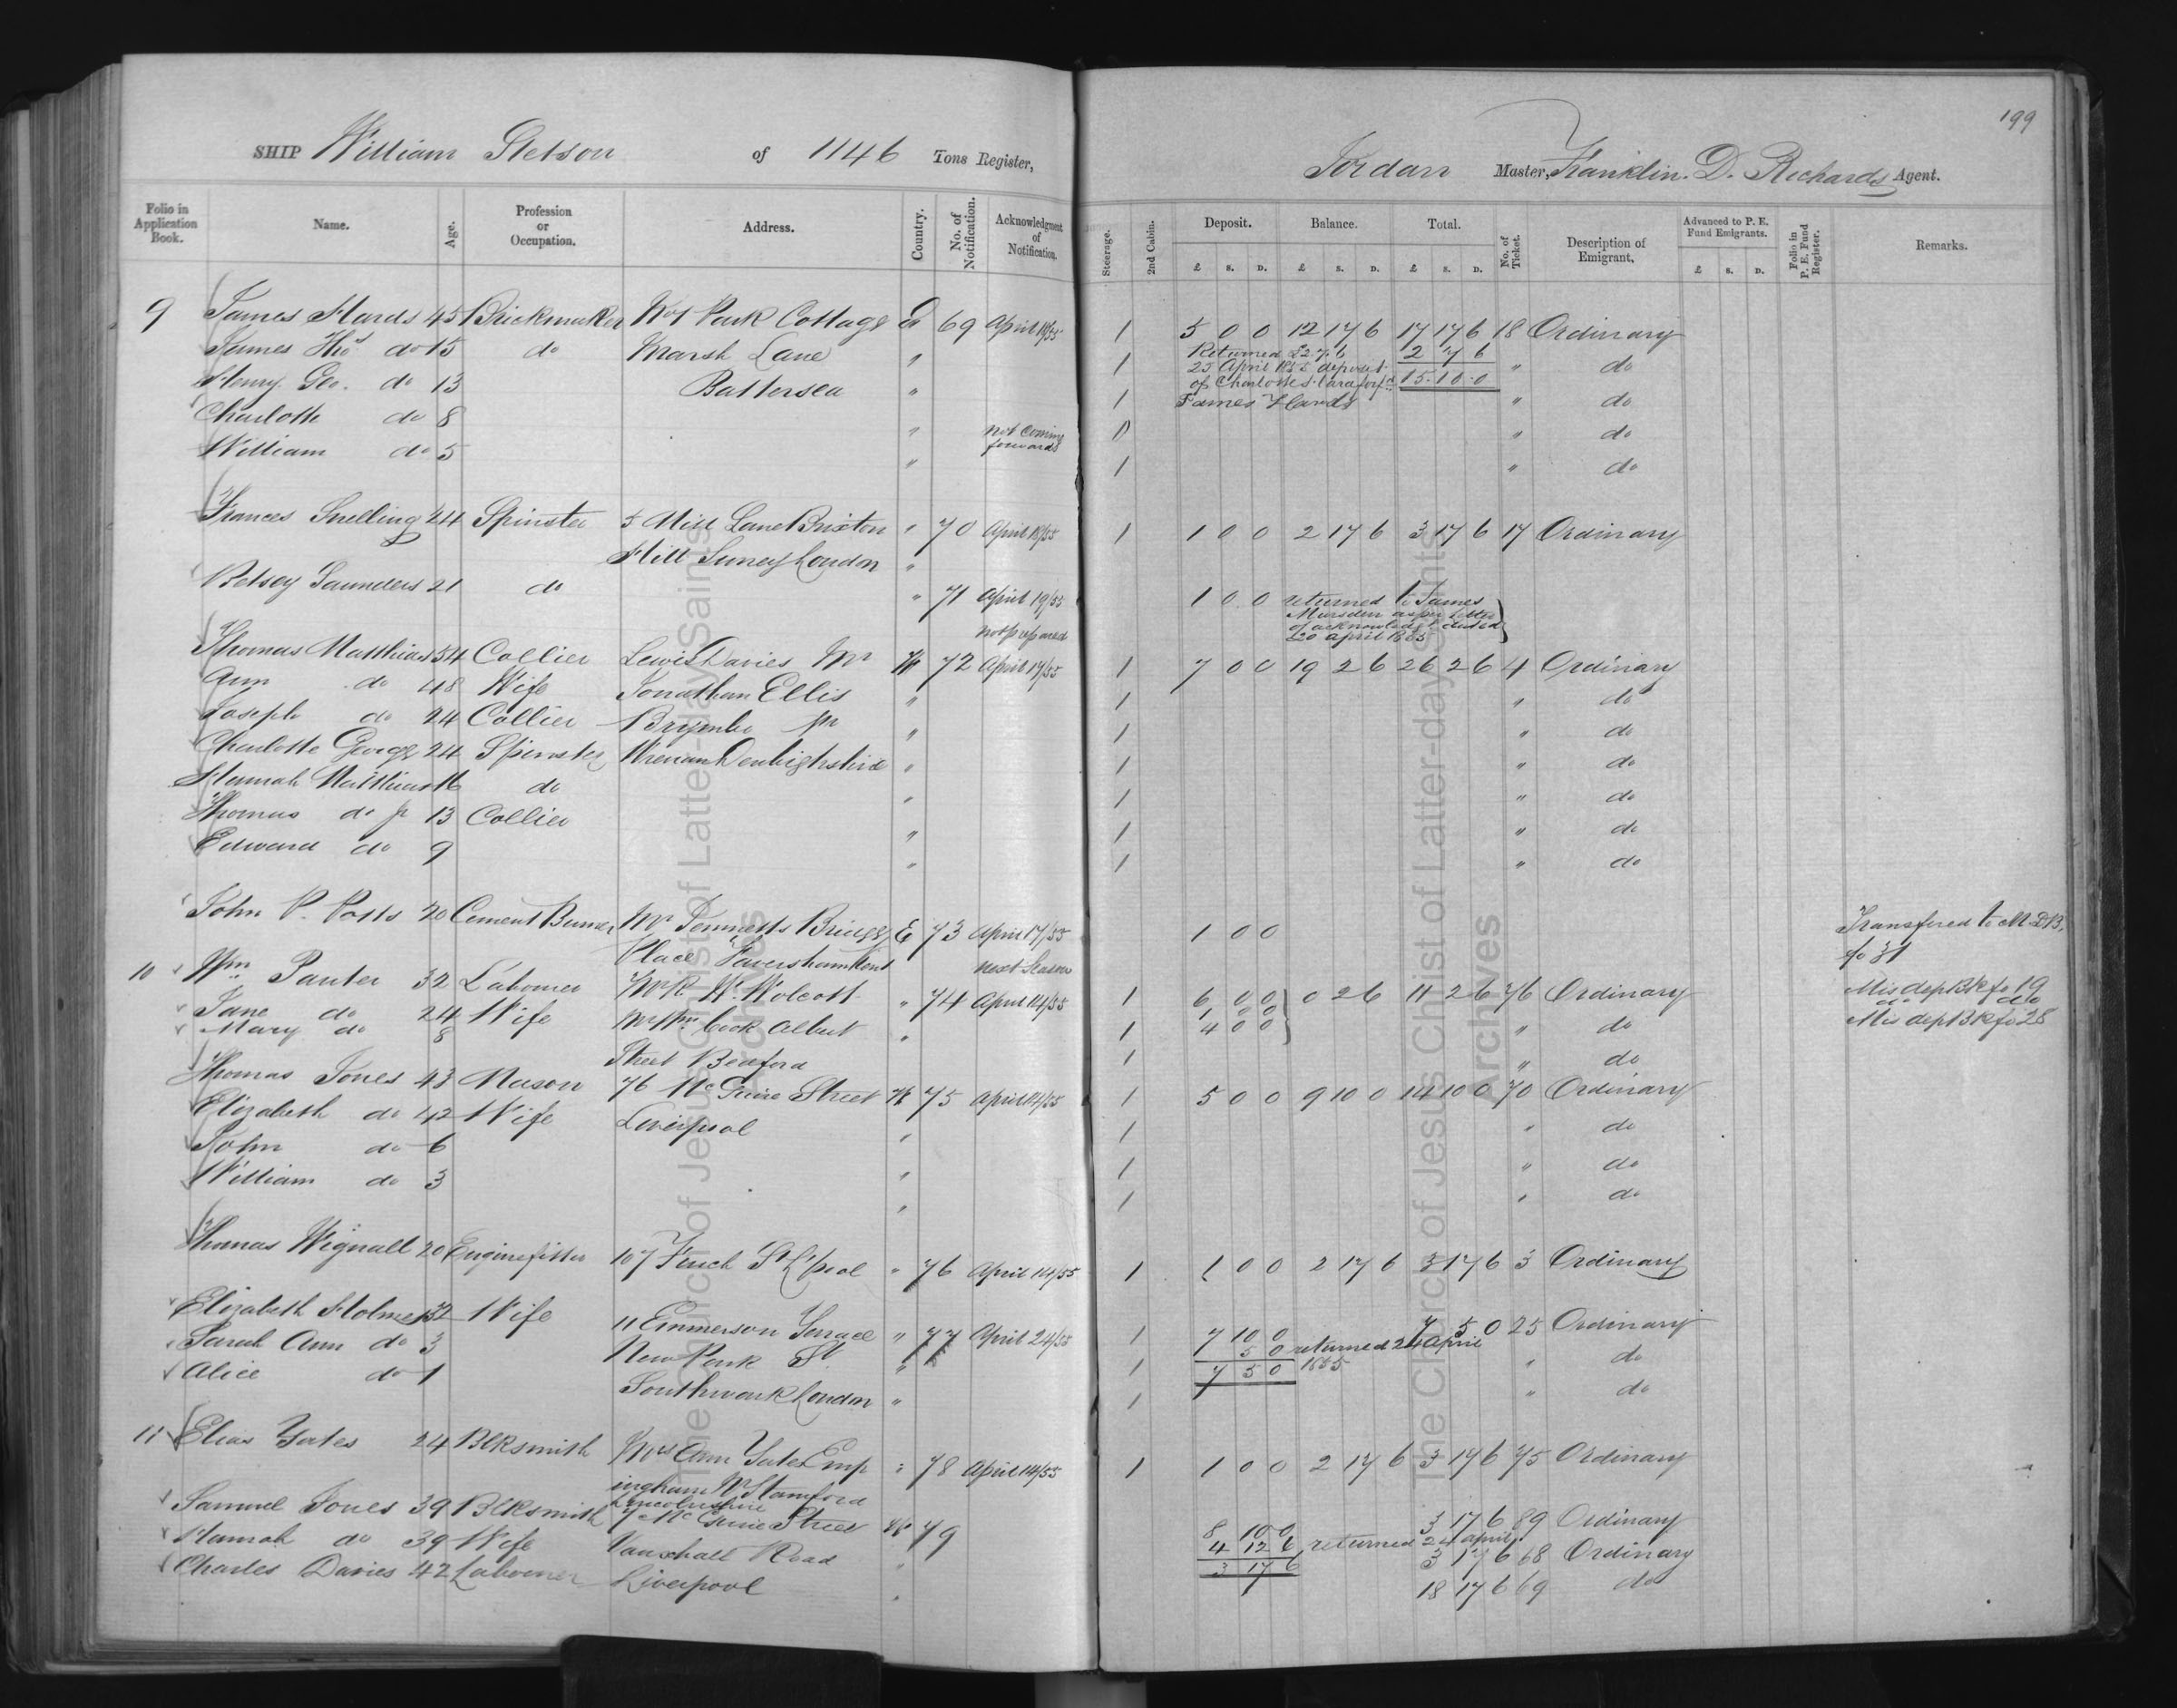 199
SHIP William Stetson of 1146 Tons Register, Jordan Master, Franklin. D. Richards Agent.
Folio in Application Book. Name. Age. Profession or Occupation. Address. Country. No. of Notification. Acknowledgment of Notification. Steerage. 2nd Cabin. Deposit. Balance. Total. No. of Ticket. Description of Emigrant. Advanced to P. E. Fund Emigrants. Folio in P. E. Fund Register. Remarks.
£ S. D. £ S. D. £ S. D. £ S. D.
9 James Hards 45 Brickmaker No 1 Park Cottage E 69 April 18/55 1 5 0 0 12 17 6 17 17 6 18 Ordinary
James Thos do 15 do Marsh Lane " 1 Returned £2.7.6 2 7 6 " do
Henry Geo. do 13 Battersea " 1 25 April 1855 deposit of Charlotte 15.10.0 " do
James Hards
Charlotte do 8 " Not Coming forward 1 " do
William do 5 " 1 " do
Frances Snelling 24 Spinster 5 Mill Lane Brixton " 70 April 18/55 1 1 0 0 2 17 6 3 17 6 17 Ordinary
Hill Surrey London "
Betsey Saunders 21 do " 71 April 19/55 1 0 0 returned to James
Marsden as per letter
of acknowledgt dated
20 April 1855
not prepared
Thomas Matthias 54 Collier Lewis Davies Mr W 72 April 17/55 1 7 0 0 19 2 6 26 2 6 4 Ordinary
Ann do 48 Wife Jonathan Ellis " 1 " do
Joseph do 24 Collier Brymbo Nr " 1 " do
Charlotte George 24 Spinster Wrexam Denbighshire " 1 " do
Hannah Matthias 16 do " 1 " do
Thomas do Jr 13 Collier " 1 " do
Edward do 9 " 1 " do
John P. Potts 20 Cement Burner Mr Jemmetts Bridge E 73 April 17/55 1 0 0 Transfered to M D B.
Place Faversham Kent next Season fo 31
10 Wm Panter 32 Labourer Mr R. W. Wolcott " 74 April 14/55 1 6 0 0 0 2 6 11 2 6 76 Ordinary Mis dep Bk fo 19
1 0 0 do do
Jane do 24 Wife Mr Wm Cook Albert " 1 4 0 0 " do Mis dept Bk fo 28
Mary do 8 Street Bedford 1 " do
Thomas Jones 43 Mason 76 Mc Guire Street W 75 April 14/55 1 5 0 0 9 10 0 14 10 0 70 Ordinary
Elizabeth do 42 Wife Liverpool " 1 " do
John do 6 " 1 " do
William do 3 " 1 " do
Thomas Wignall 20 Enginefitter 107 Finch St L'pool " 76 April 14/55 1 1 0 0 2 17 6 3 17 6 3 Ordinary
Elizabeth Holmes 32 Wife 11 Emmerson Terrace " 77 April 24/55 1 7 10 0 7 5 0 25 Ordinary
Sarah Ann do 3 New Park St " 1 5 0 returned 24 April 1855 " do
7 5 0
Alice do 1 Southwark London " 1 " do
11 Elias Yates 24 Blksmith Mrs Ann Yates Emp " 78 April 14/55 1 1 0 0 2 17 6 3 17 6 75 Ordinary
ingham Nr Stamford
Lincolnshire
Samuel Jones 39 Blksmith 7 Mc Guire Street W 79 8 10 0 3 17 6 89 Ordinary
Hannah do 39 Wife Vauxhall Road " 4 12 6 returned 24 April 3 17 6 68 Ordinary
3 17 6
Charles Davies 42 Labourer Liverpool " 18 17 6 69 do
The Church of Jesus Christ of Latter-day Saints
Archives
The Church of Jesus Christ of Latter-day Saints
Archives